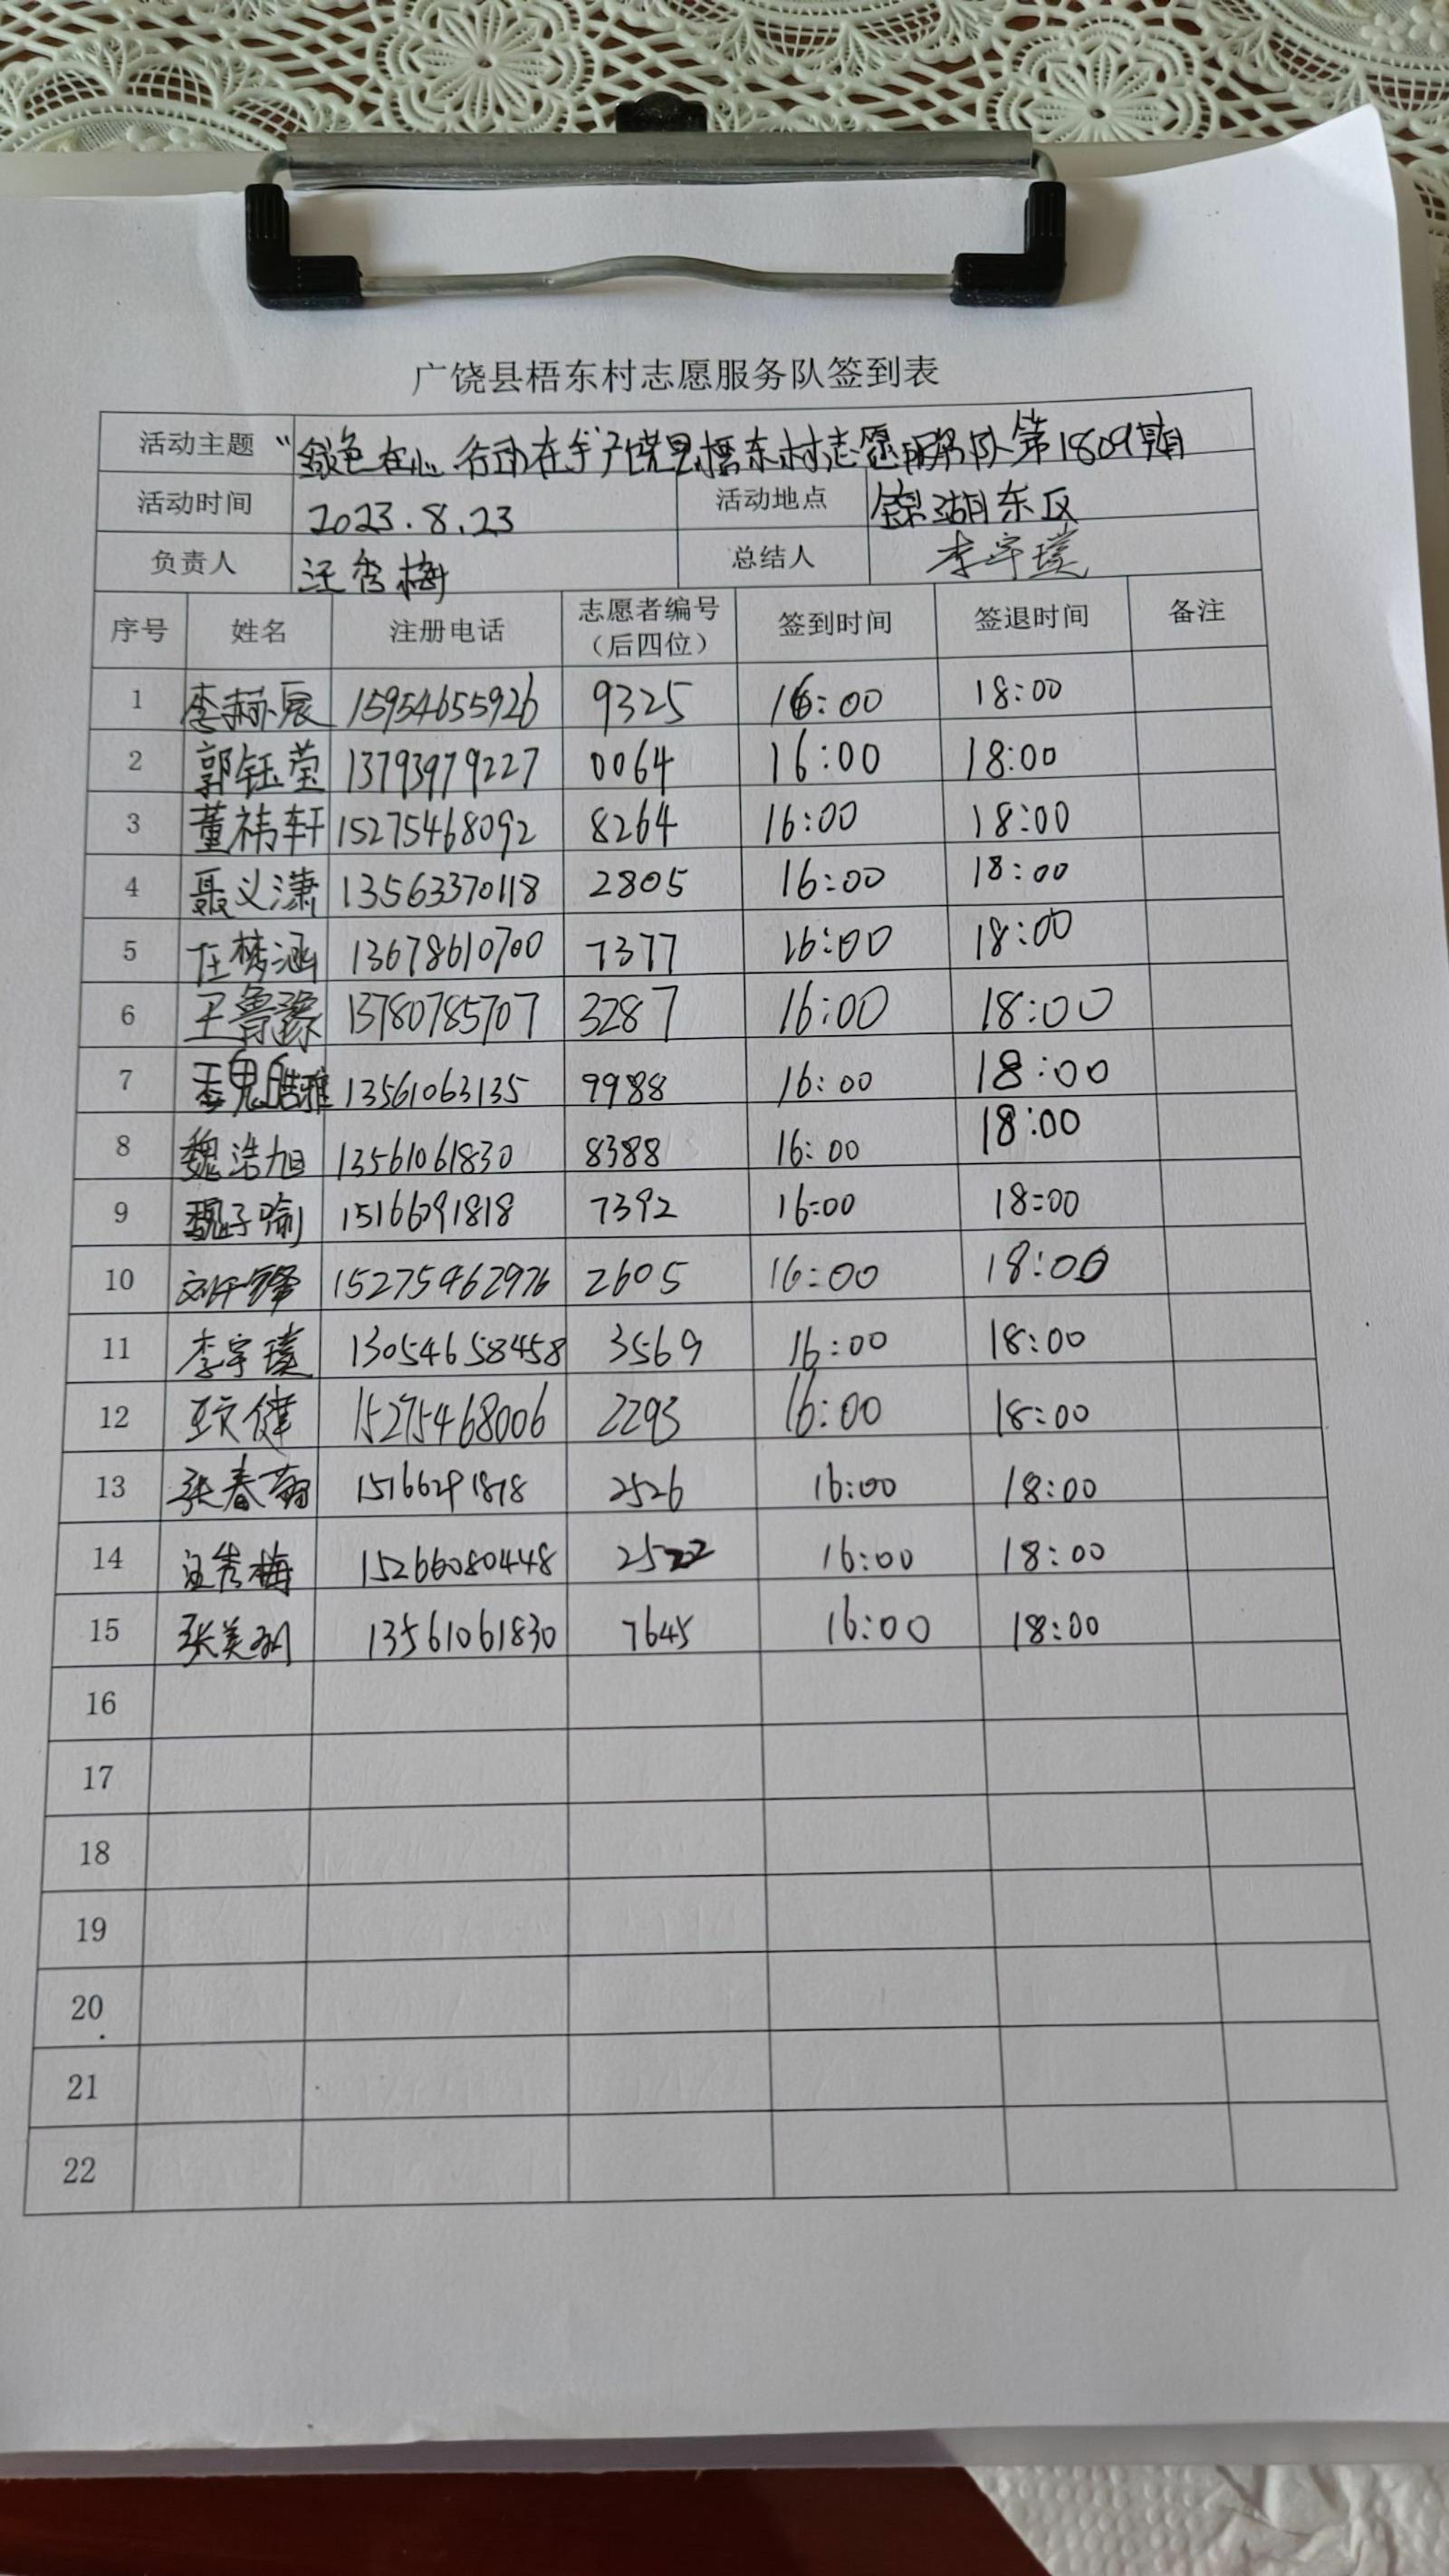 广饶县梧东村志愿服务队签到表
活动主题 “绿色在心 行动在手”广饶县梧东村志愿服务队第1809期
活动时间 2023.8.23 活动地点 锦湖东区
负责人 汪秀梅 总结人 李宇璞
序号 姓名 注册电话 志愿者编号（后四位） 签到时间 签退时间 备注
1 李赫宸 15954655926 9325 16:00 18:00
2 郭钰莹 13793979227 0064 16:00 18:00
3 董祎轩 15275468092 8264 16:00 18:00
4 聂义潇 13563370118 2805 16:00 18:00
5 任梦涵 13678610700 7377 16:00 18:00
6 王鲁豫 13780785707 3287 16:00 18:00
7 魏皓雅 13561063135 9988 16:00 18:00
8 魏浩旭 13561061830 8388 16:00 18:00
9 魏子喻 15166291818 7392 16:00 18:00
10 15275462976 2605 16:00 18:00
11 李宇璞 13054658458 3569 16:00 18:00
12 15275468006 2293 16:00 18:00
13 张春菊 15166291818 2526 16:00 18:00
14 汪秀梅 15266080448 2522 16:00 18:00
15 张美 13561061830 7645 16:00 18:00
16
17
18
19
20
21
22